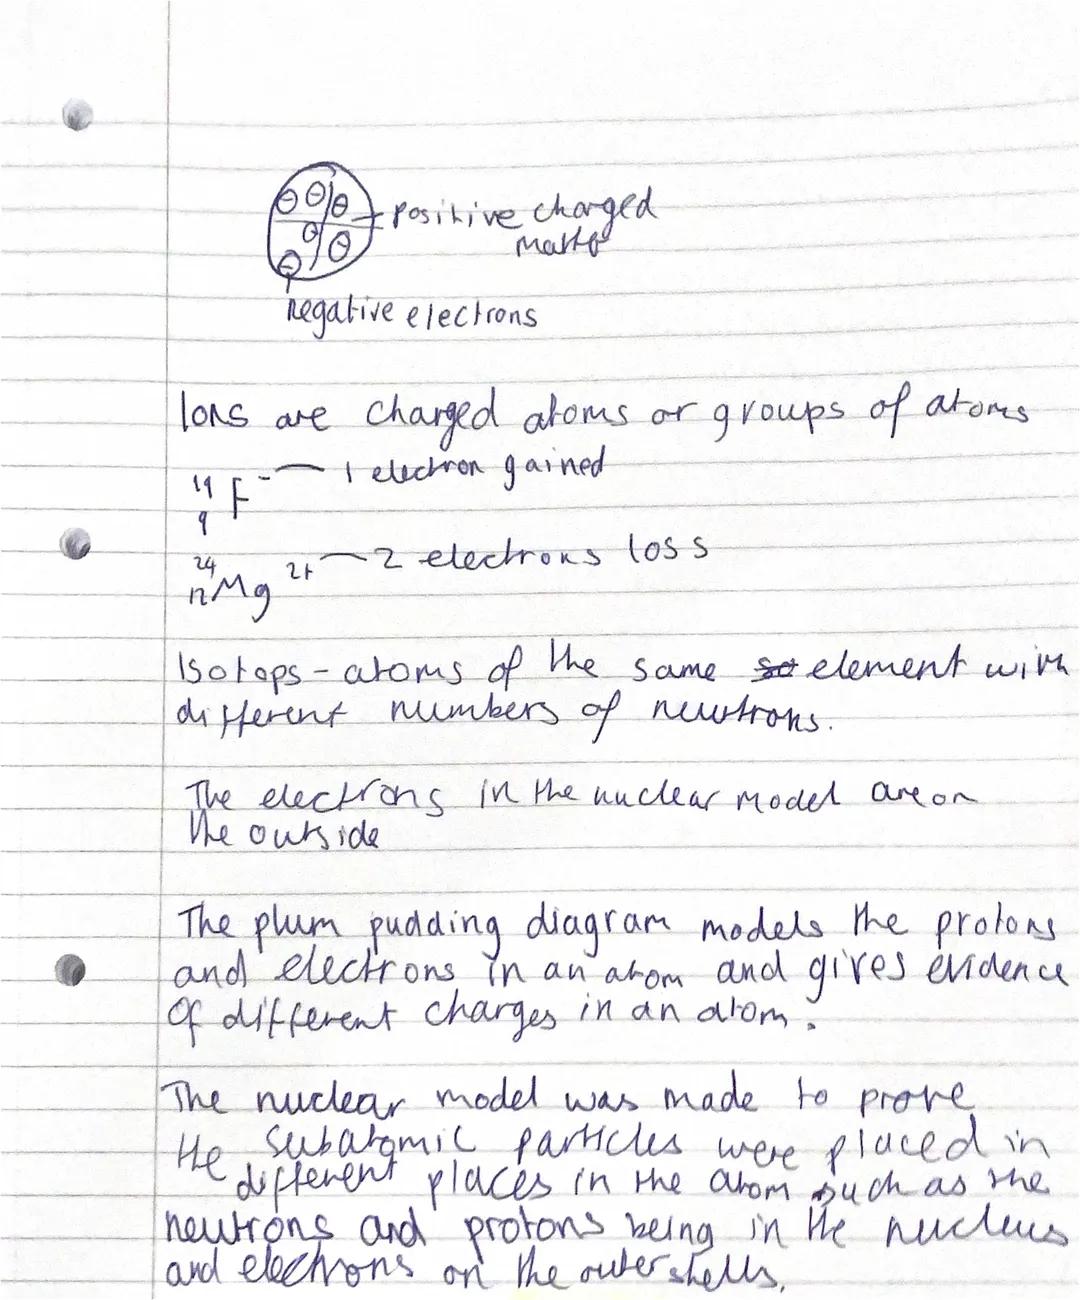 positive charged
matter
negative electrons
Ions are charged atoms or groups of atoms
19
F - — 1 electron gained
9
24
12 Mg 2+ — 2 electrons loss
Isotops - atoms of the same element with
different numbers of neutrons.
The electrons in the nuclear model are on
the outside
The plum pudding diagram models the protons
and electrons in an atom and gives evidence
of different charges in an atom.
The nuclear model was made to prove
the subatomic particles were placed in
different places in the atom such as the
neutrons and protons being in the nucleus
and electrons on the outer shells.